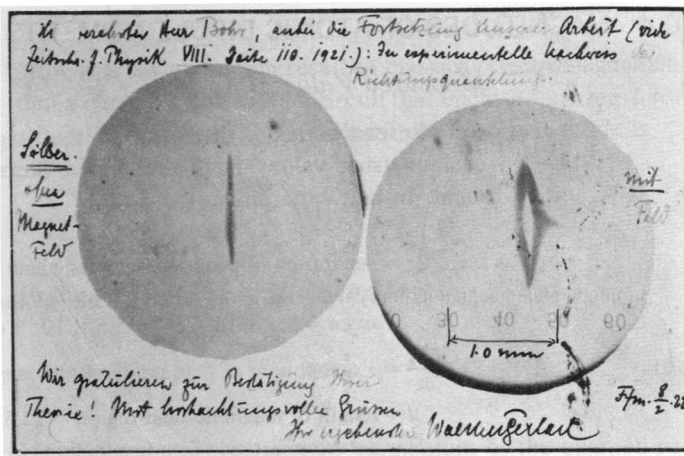 verehrter Herr Bohr, anbei die Fortsetzung unserer Arbeit (vide
Zeitschr. f. Physik VIII. Seite 110. 1921.): Der experimentelle Nachweis der
Richtungsquantelung.
Silber.
ohne
Magnet-
Feld
mit
Feld
0 30 40 50 60
1.0 mm
Wir gratulieren zur Bestätigung Ihrer
Theorie! Mit hochachtungsvollen Grüssen
Ihr ergebenster Walther Gerlach.
Ffm. 8/2. 22